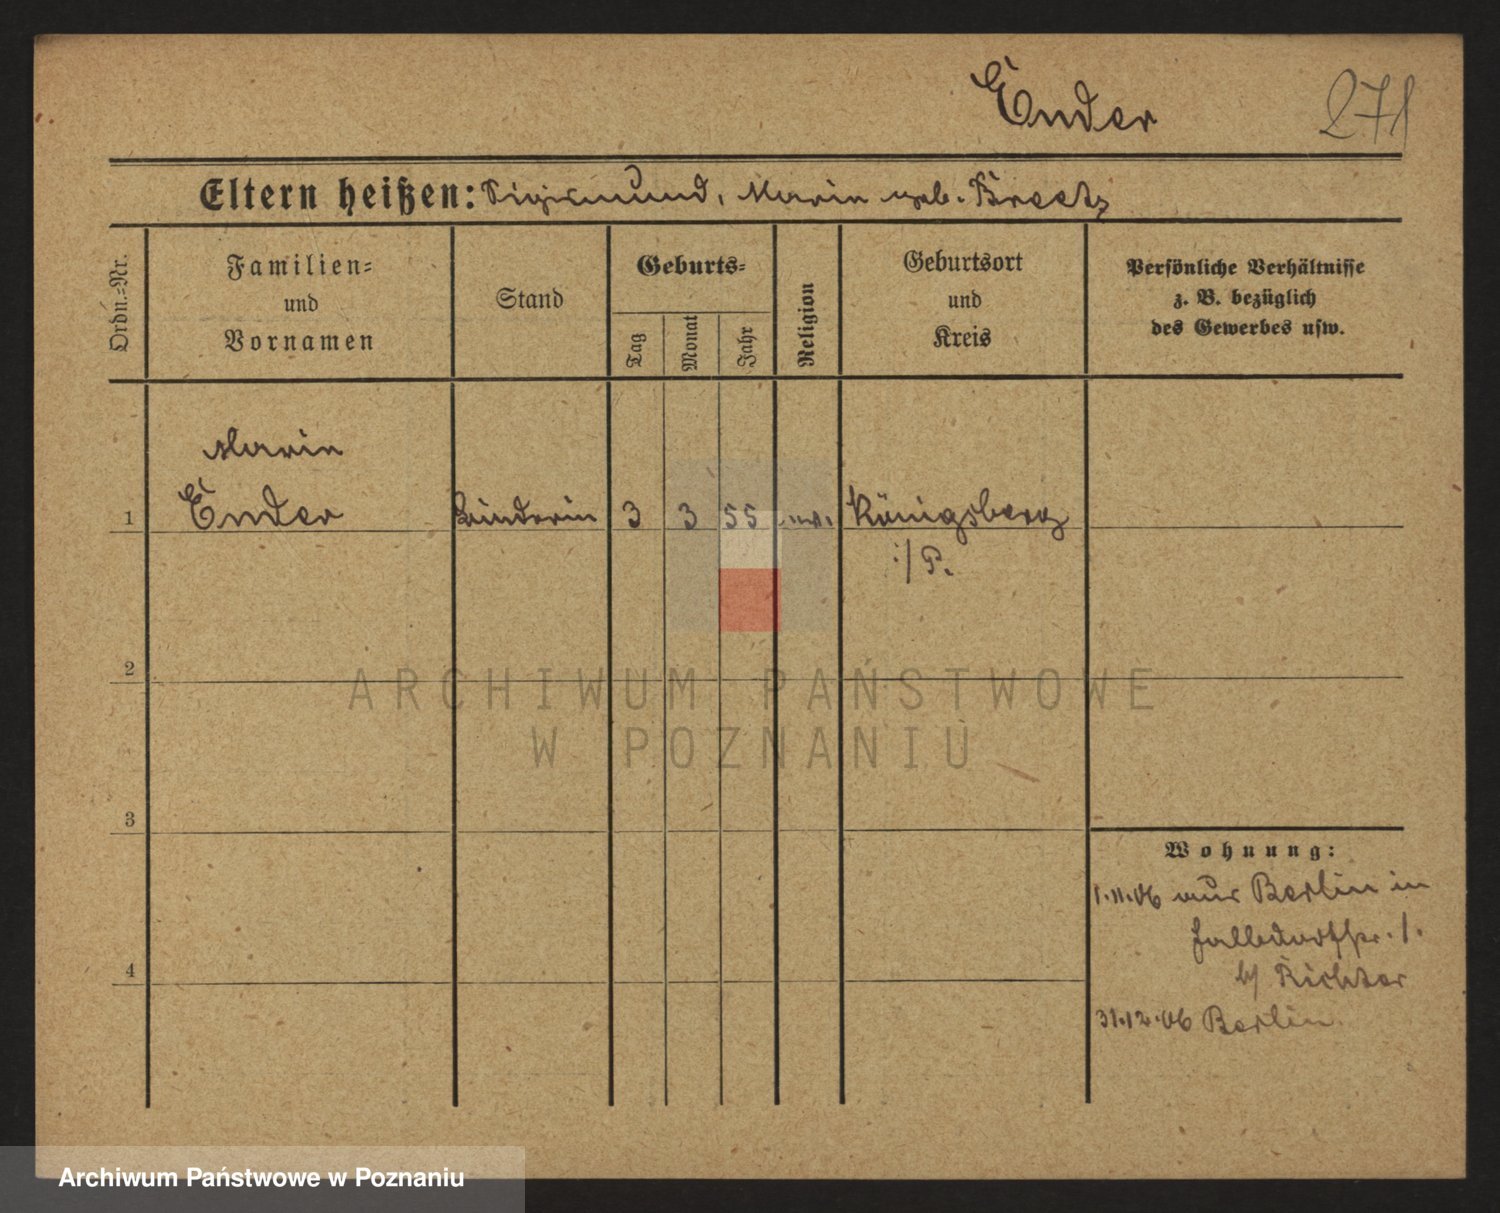 Ender
271
Eltern heißen: Sigismund, Marie geb. Breetz
Ordn.-Nr.
Familien-
und
Vornamen
Stand
Geburts-
Tag
Monat
Jahr
Religion
Geburtsort
und
Kreis
Persönliche Verhältnisse
z. B. bezüglich
des Gewerbes usw.
Marie
1 Ender 3 3 55 Königsberg
i/P.
2
3
4
Wohnung:
1.11.06 aus Berlin in
1.
b/ Richter
31.12.06 Berlin.
ARCHIWUM PAŃSTWOWE
W POZNANIU
Archiwum Państwowe w Poznaniu